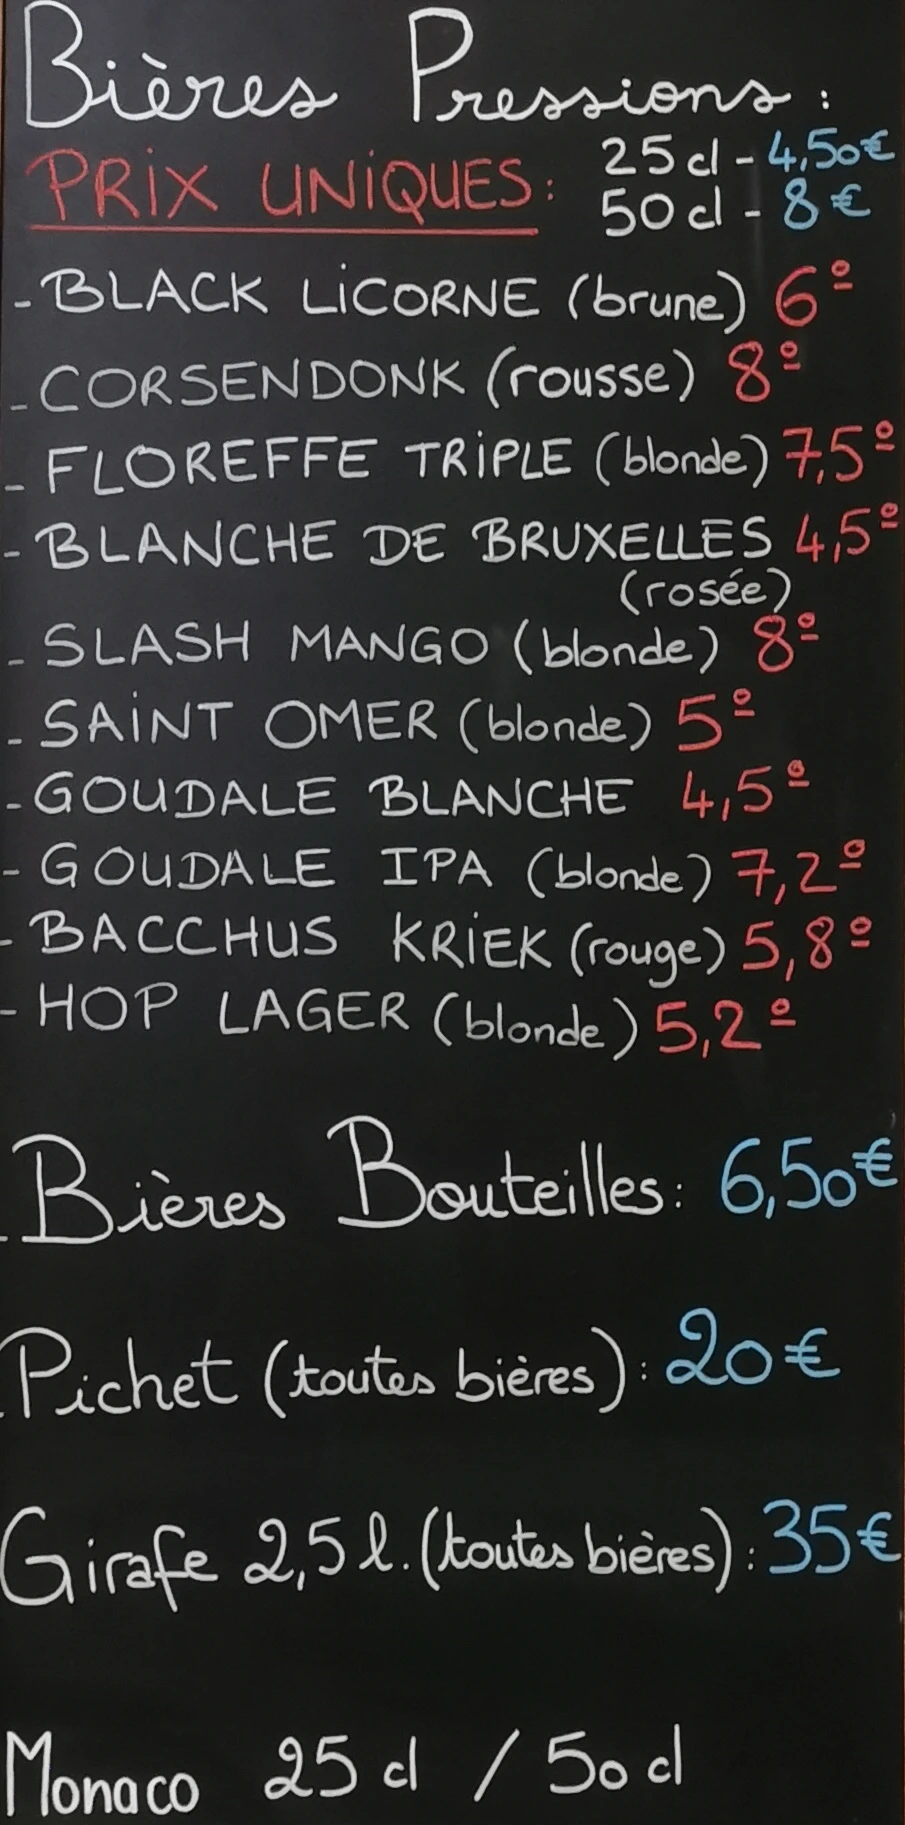 Bières Pressions :
PRIX UNIQUES : 25 cl - 4,50€
50 cl - 8€
- BLACK LICORNE (brune) 6º
- CORSENDONK (rousse) 8º
- FLOREFFE TRIPLE (blonde) 7,5º
- BLANCHE DE BRUXELLES 4,5º
(rosée)
- SLASH MANGO (blonde) 8º
- SAINT OMER (blonde) 5º
- GOUDALE BLANCHE 4,5º
- GOUDALE IPA (blonde) 7,2º
- BACCHUS KRIEK (rouge) 5,8º
- HOP LAGER (blonde) 5,2º
Bières Bouteilles : 6,50€
Pichet (toutes bières) : 20€
Girafe 2,5 l. (toutes bières) : 35€
Monaco 25 cl / 50 cl